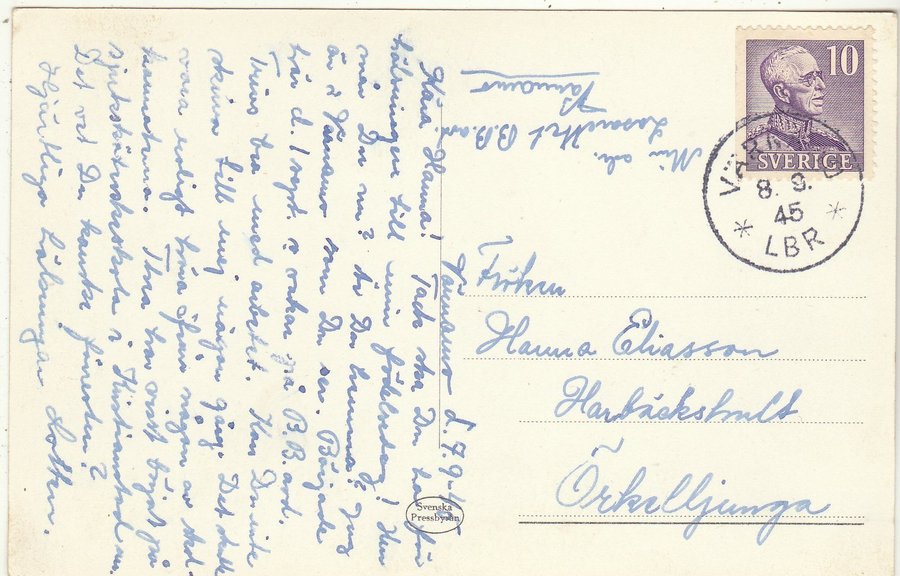 10
SVERIGE
VÄRNAMO
8. 9.
45
* LBR *
Min adr.
Lasarettet B.B.avd
Värnamo
Värnamo d. 7.9-45
Kära Hanna! Tack ska Du ha för
hälsningen till min födelsedag! Hur
mår Du nu? Är Du hemma? Jag
är i Värnamo som Du ser. Började
här d. 1 sept. o vakar på B.B.avd.
Trivs bra med arbetet. Kan Du inte
skriva till mej någon gång. Det skulle
vara roligt höra ifrån någon av skol-
kamraterna. har visst börjat på
sjuksköterskeskola i Kristianstad nu.
Det vet Du kanske förresten?
Hjärtliga hälsningar Lotten.
Fröken
Hanna Eliasson
Harbäckshult
Örkelljunga
Svenska
Pressbyrån